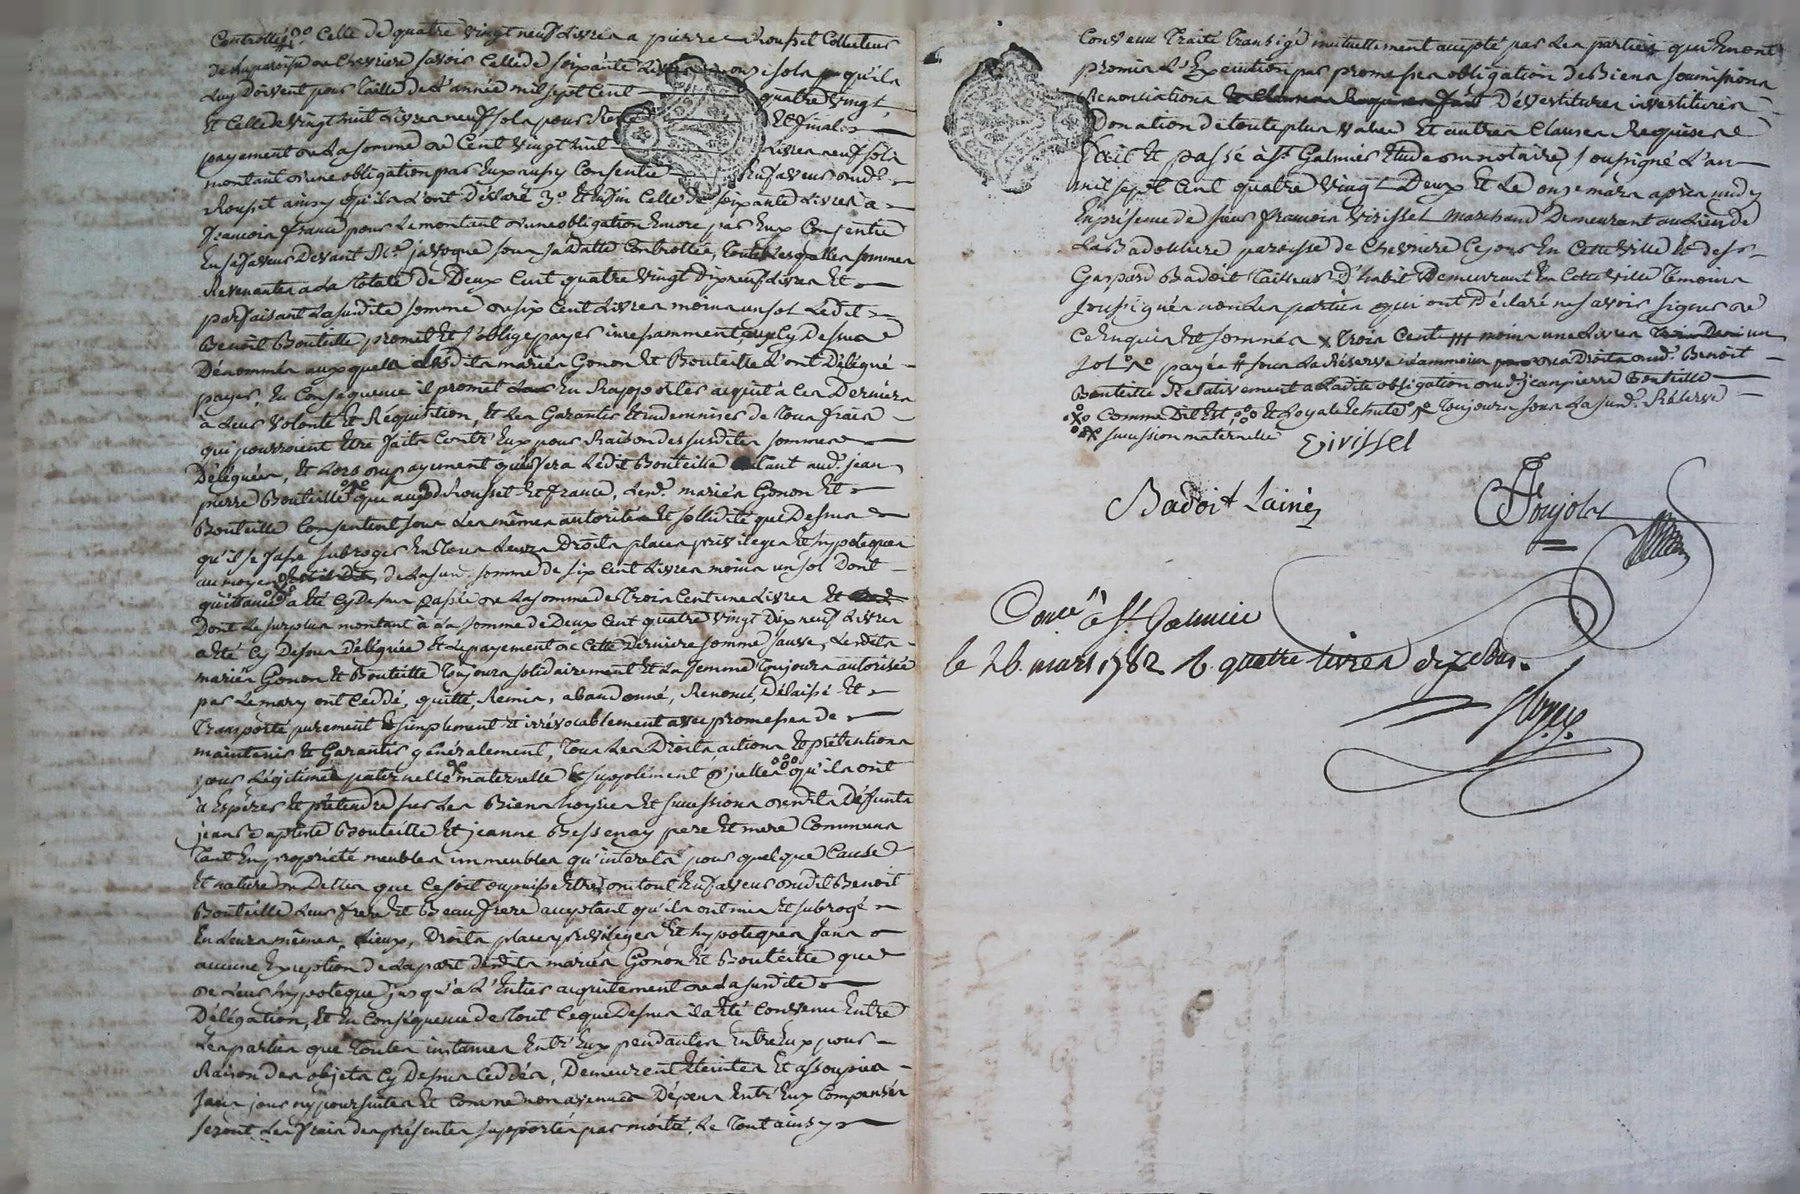 Controllée 2.o Celle de quatre vingt neuf Livres a pierre Rousset Collecteur
de la paroisse de Chevriere savoir Celle de soixante Livres onze sols qu'ils
Luy doivent pour taille de l'année mil sept Cent quatre vingt
Et Celle de vingt huit Livres neuf sols pour Et final
payement de la somme de Cent vingt huit Livres neuf sols
montant d'une obligation par Eux aussy Consentie En faveur dud.
Rousset ainsy qu'ils L'ont Déclaré 3.o Et Enfin Celle de soixante Livres à
francois france pour Le montant d'une obligation Encore par Eux Consentie
En sa faveur Devant M.e javogue sous sa datte Controllée, toutes lesquelles sommes
Revenantes a La totale de Deux Cent quatre vingt dix neuf Livres Et
parfaisant La susdite somme de six Cent Livres moins un sol Ledit
Benoit Bouteille promet Et s'oblige payer incessamment aux Cy Dessus
Dénommés auxquels Lesdits mariés Gonon Et Bouteille L'ont Délégué
payer, En Conséquence il promet En Rapporter acquit à Ces Derniers
à Leur volonté Et Réquisition, Et Les Garantir Et indemniser de tous frais
qui pourroient Etre faits Contr'Eux pour Raison des susdites sommes
Déléguées, Et Lors du payement que fera Ledit Bouteille tant aud. jean
pierre Bouteille que auxd. Rousset Et france, Lesd. mariés Gonon Et
Bouteille Consentent sous Les mêmes autorités Et sollidité que Dessus
qu'il se fasse subroger En tous Leurs Droits places privileges Et hypoteques
au moyen de La sus. somme de six Cent Livres moins un sol Dont
quittance a Eté Cy Dessus passée de La somme de Trois Cent une Livres Et
Dont Le surplus montant à La somme de Deux Cent quatre vingt Dix neuf Livres
a Eté Cy Dessus Déléguée Et Le payement de Cette Derniere somme sauve, Lesdits
mariés Gonon Et Bouteille Toujours solidairement Et La femme Toujours autorisée
par Le mary ont Ceddé, quitté, Remis, abandonné, Renoncé, Délaissé Et
Transporté purement Et simplement Et irrévocablement avec promesses de
maintenir Et Garantir généralement, Tous Les Droits actions Et prétentions
pour Légitime paternelle maternelle Et supplément d'jcelles qu'ils ont
à Espérer Et prétendre sur Les Biens hoiries Et successions desdits Défunts
jean Baptiste Bouteille Et jeanne Bessenay pere Et mere Communs
Tant En propriété meubles immeubles qu'interets pour quelque Cause
Et nature de Dettes que Ce soit ou puisse Etre, Du tout En faveur dudit Benoit
Bouteille Leur frere Et Beau frere acceptant qu'ils ont mis Et subrogé
En Leurs mêmes, Lieux, Droits places privileges Et hypoteques sans
aucune Exception de La part desdits mariés Gonon Et Bouteille que
de Leur hypoteque jusqu'à L'Entier acquitement de La susdite
Délégation, Et En Conséquence de Tout Ce que Dessus il a Eté Convenu Entre
Les parties que toutes instances Entr'Eux pendantes Entre Eux pour
Raison des objets Cy Dessus Ceddés, Demeurent Eteintes Et assoupies
sans jour ny poursuites Et Comme non avenues Dépens Entr'Eux Compensés
seront Les frais des présentes supportés par moitié, Le Tout ainsy
Convenu Traité Transigé mutuellement accepté par Les parties qui En ont
promis L'Exécution par promesses obligation de Biens soumissions
Renonciations Dévestitures investitures
Donation de toute plus value Et autres Clauses Requises
fait Et passé à St. Galmier Etude du notaire soussigné L'an
mil sept Cent quatre vingt Deux Et Le onze mars après midy
En présence de sieur francois Virissel marchand Demeurant au Lieu de
La Badouliere paroisse de Chevriere Ce jour En Cette ville Et de sr.
Gaspard Badoit Tailleur d'habit Demeurant En Cette ville Témoins
soussignés non Les parties qui ont Déclaré ne savoir signer de
Ce Enquis Et sommés x Trois Cent moins une Livres un
sol payée sous La Réserve néammoins des Droits dud. Benoit
Bouteille Relativement a Ladite obligation dud. jean pierre Bouteille
Comme Dit Est, Et Loyale Toujours sous La susd. Réserve
succession maternelle Virissel
Badoit Lainé
Con.lé à St. Galmier
le 26. mars 1782 R. quatre livres dix sous.